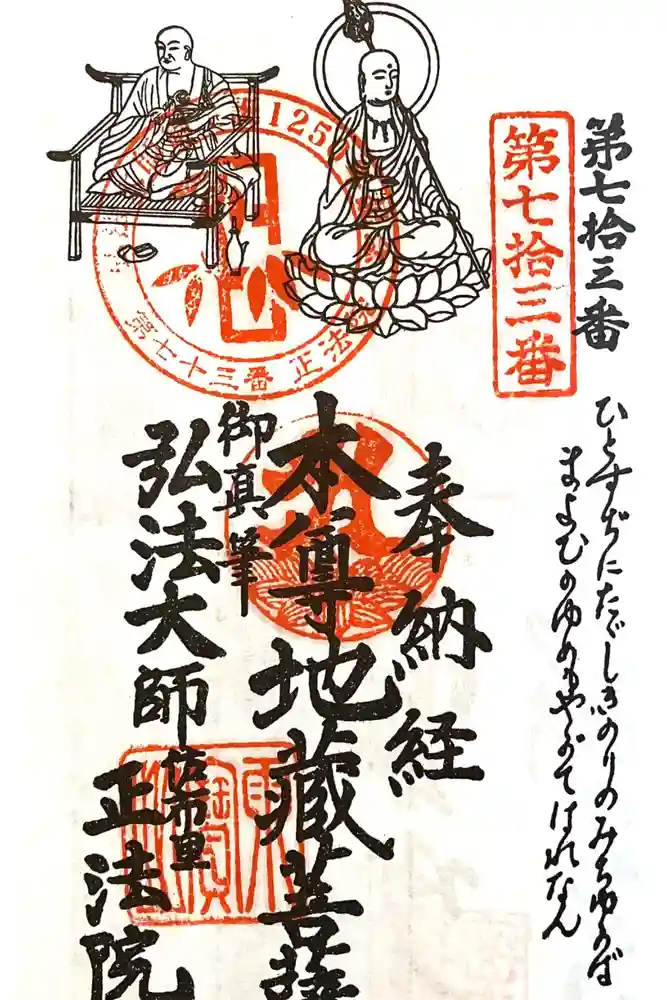 第七拾三番
第七拾三番
ひとすぢにたゞしきのりのみちゆかば
まよひのゆめもやがてはれなん
奉納経
本尊地藏菩薩
御真筆
弘法大師
佐布里
正法院
125
第七十三番 正法院